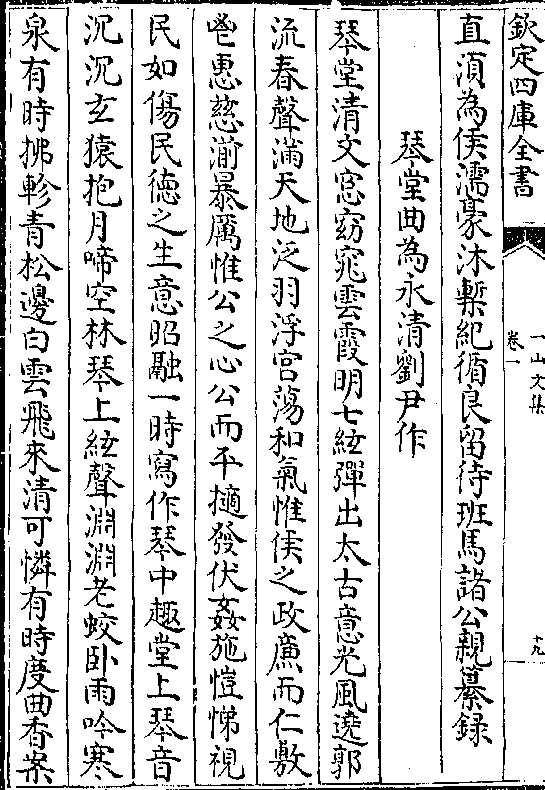 欽定四庫全書
一山文集
卷一
十九
直湏為侯濡豪沐槧紀循良留待班馬諸公親纂録
琴堂曲為永清劉尹作
琴堂清文窓窈窕雲霞明七絃彈出太古意光風遶郭
流春聲滿天地泛羽浮宮蕩和氣惟侯之政廉而仁敷
鬯惠慈湔暴厲惟公之心公而平擿發伏姦施愷悌視
民如傷民徳之生意昭融一時寫作琴中趣堂上琴音
沉沉玄猿抱月啼空林琴上絃聲淵淵老蛟卧雨吟寒
泉有時拂軫青松邊白雲飛來清可憐有時度曲香案